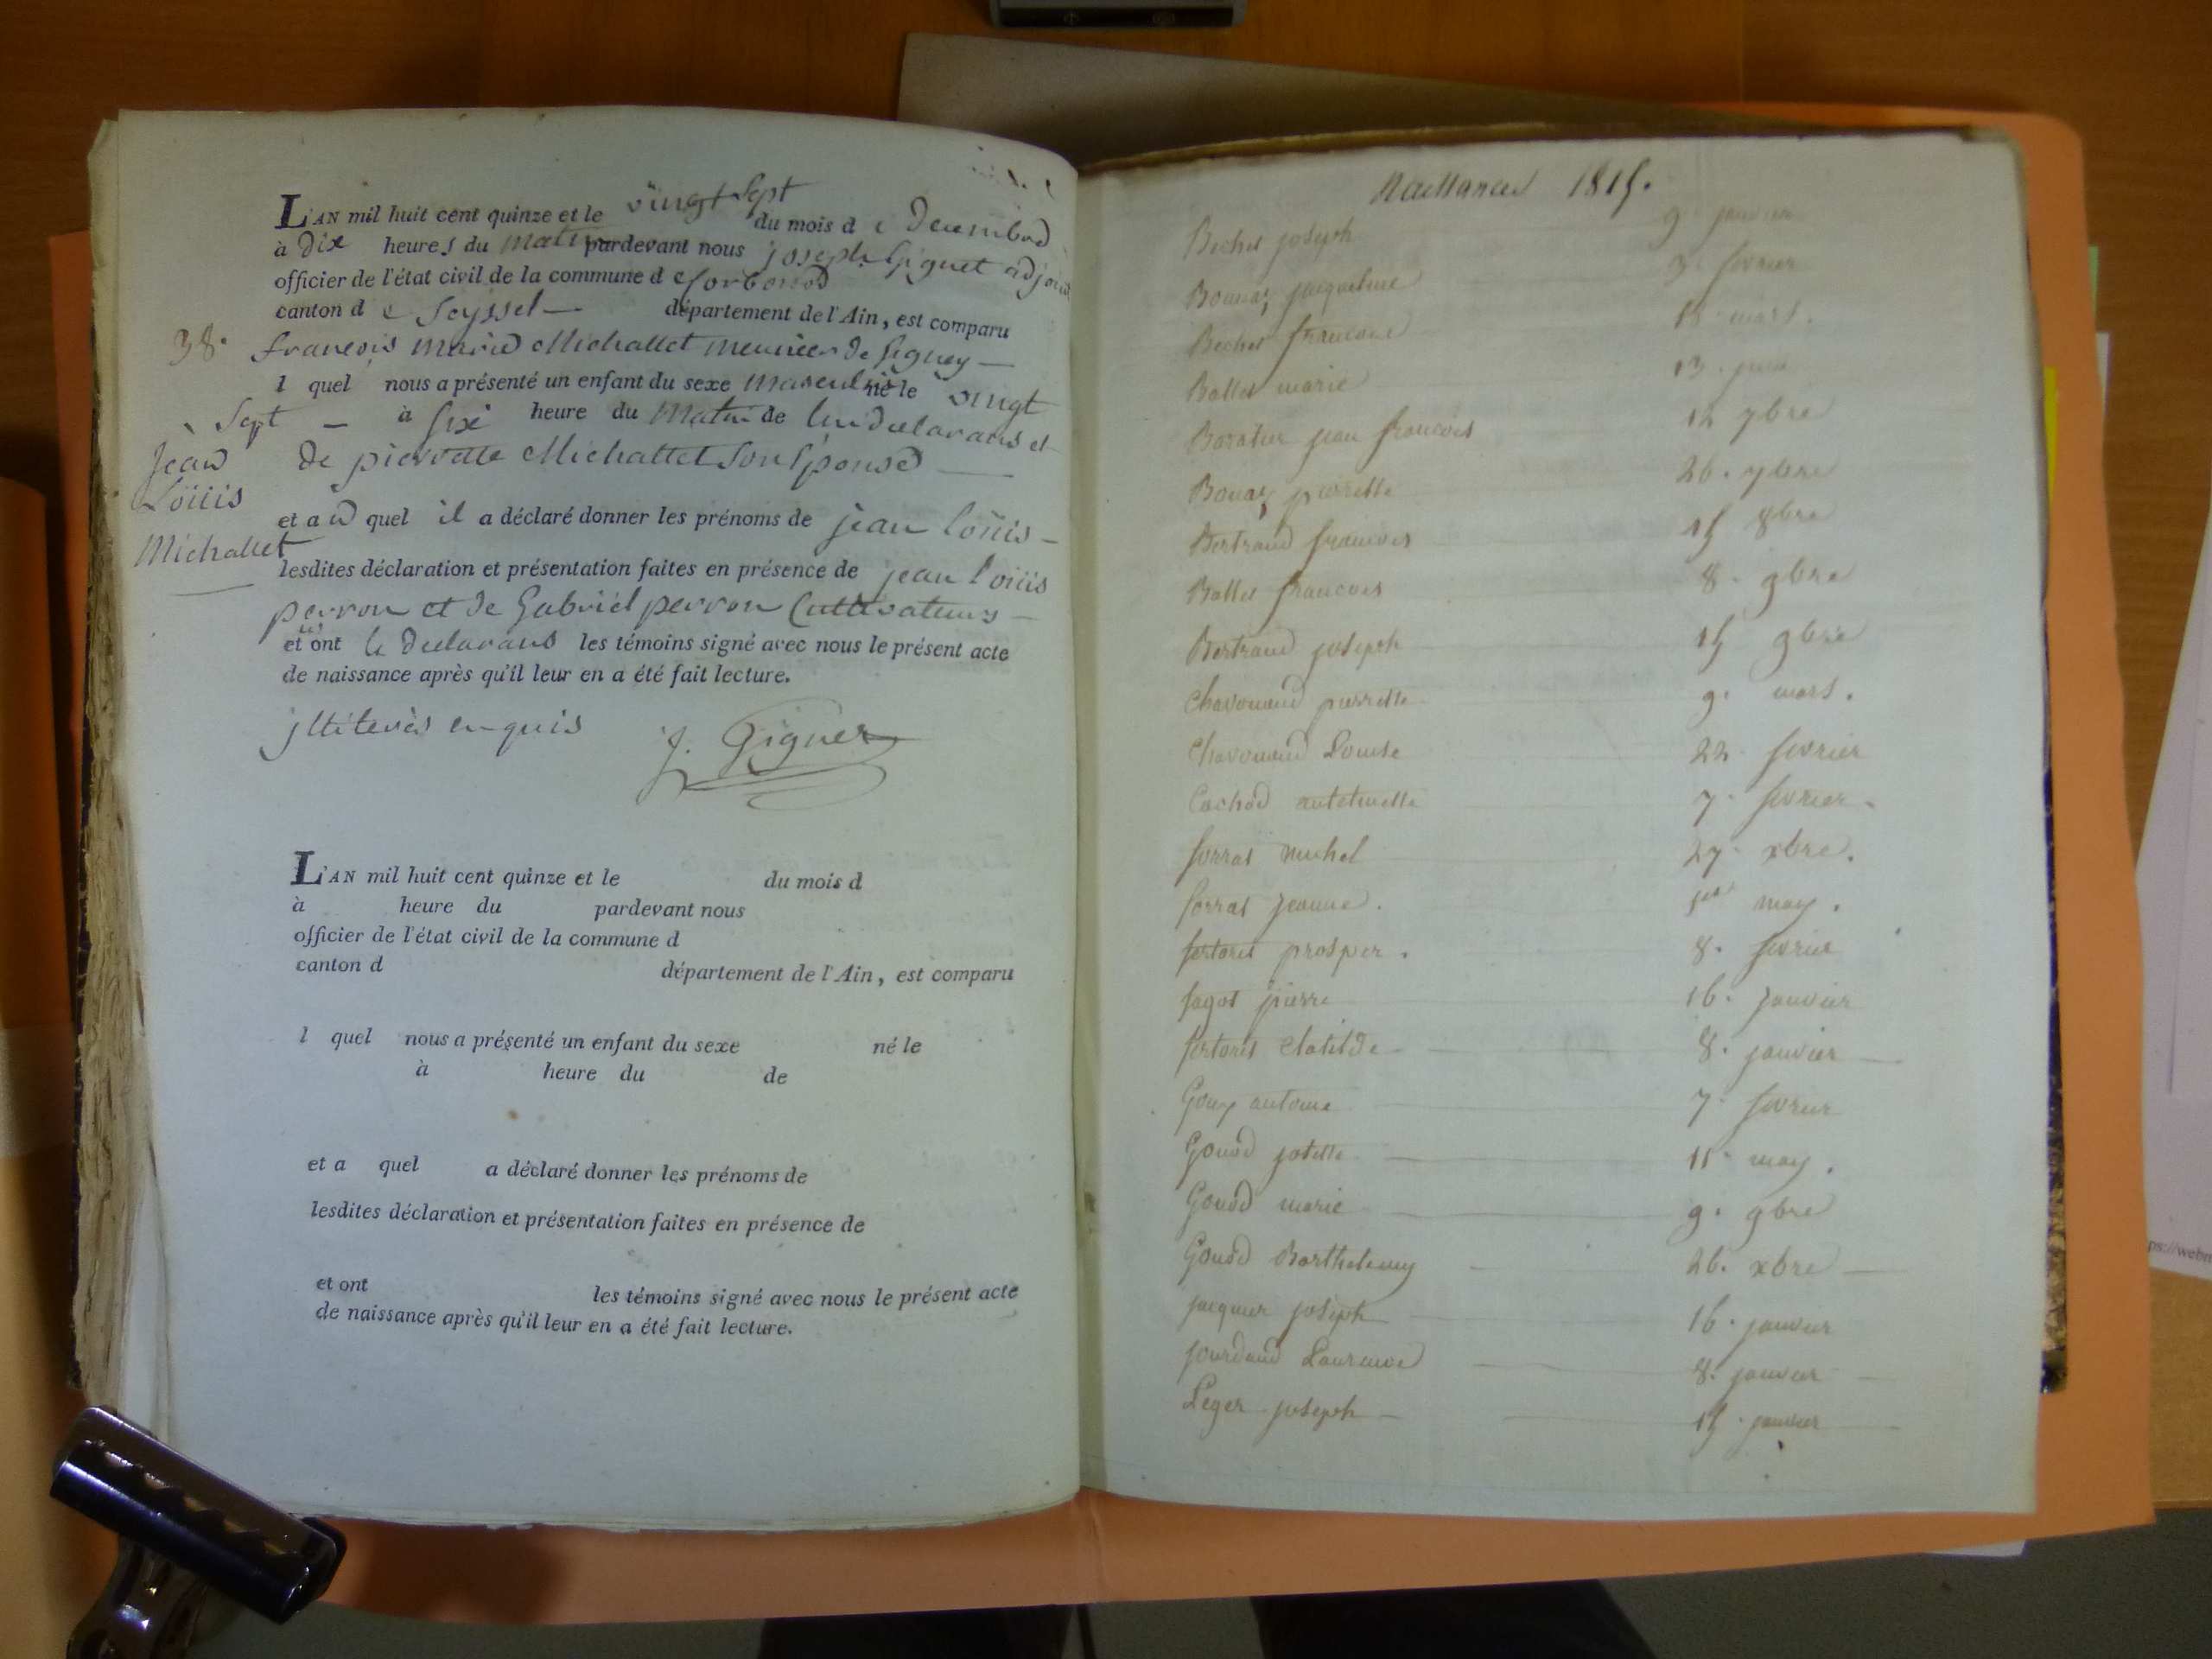 L'AN mil huit cent quinze et le vingt Sept du mois d e decembre
à dix heures du matin pardevant nous joseph Giguet adjoint
officier de l'état civil de la commune d e Corbonod
canton d e Seyssel département de l'Ain, est comparu
38. francois marie Michallet meunier de Gigney
l quel nous a présenté un enfant du sexe masculin né le vingt
Sept à Six heure du Matin de lui declarans et
de pierrette Michallet Son Epouse
Jean
Loüis
Michallet
et a u quel il a déclaré donner les prénoms de jean loüis
lesdites déclaration et présentation faites en présence de jean loüis
perron et de Gabriel perron Cultivateurs
et ont le declarans les témoins signé avec nous le présent acte
de naissance après qu'il leur en a été fait lecture.
illiterés enquis
J. Giguet
L'AN mil huit cent quinze et le du mois d
à heure du pardevant nous
officier de l'état civil de la commune d
canton d département de l'Ain, est comparu
l quel nous a présenté un enfant du sexe né le
à heure du de
et a quel a déclaré donner les prénoms de
lesdites déclaration et présentation faites en présence de
et ont les témoins signé avec nous le présent acte
de naissance après qu'il leur en a été fait lecture.
Naissances 1815.
Bechet joseph 9 janvier
Bonnaz jacqueline 3. fevrier
Bechet francoise mars.
Ballet marie 13. juin
Baratier jean francois 12 7bre
Bonaz pierrette 26. 7bre
Bertrand francois 15 8bre
Ballet francois 8. 9bre
Bertrand joseph 15 9bre
Chavouand pierrette 9. mars.
Chavouand Louise 22. fevrier
Cochod antoinette 7. fevrier.
forras michel 27. xbre.
forras jeanne. 1er may.
fertoret prosper. 8. fevrier
fagot pierre 16. janvier
fertoret Clotilde 8. janvier
Gouy antoine 7. fevrier
Gonod josette 11. may.
Gonod marie 9. 9bre
Gonod Barthelemy 26. xbre
jacquier joseph 16. janvier
jourdand Laurence 8. janvier
Leger joseph 15. janvier
ps://webm